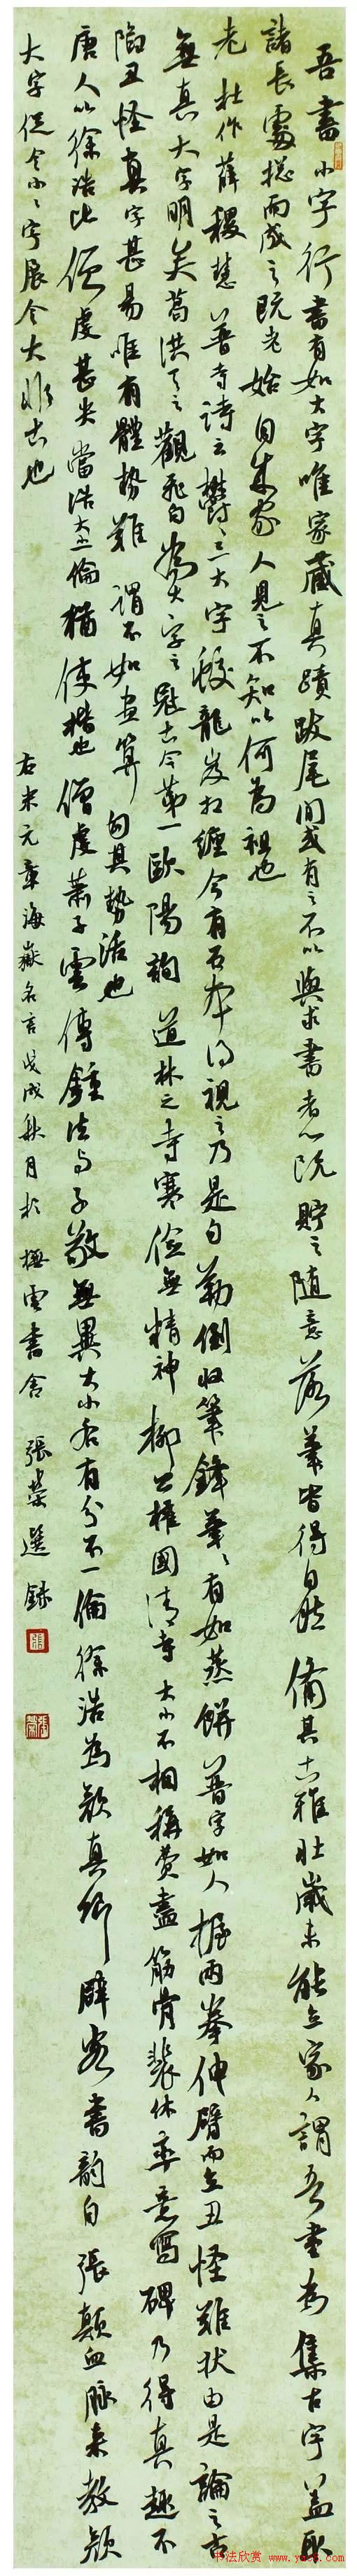 吾書小字行書有如大字唯家藏真蹟跋尾間或有之不以與求書者心既貯之隨意落筆皆得自然備其古雅壯歲未能立家人謂吾書為集古字蓋取
諸長處總而成之既老始自成家人見之不知以何為祖也
老杜作薛稷慧普寺詩云鬱鬱三大字蛟龍岌相纏今有石本得視之乃是勾勒倒收筆鋒筆筆有如蒸餅普字如人握兩拳伸臂而立醜怪難狀由是論之古
無真大字明矣葛洪天台之觀飛白為大字之冠古今第一歐陽詢道林之寺寒儉無精神柳公權國清寺大小不相稱費盡筋骨裴休率意寫碑乃得真趣不
陷丑怪真字甚易唯有體勢難謂不如畫算勻其勢活也
唐人以徐浩比僧虔甚失當浩大小一倫猶吏楷也僧虔蕭子雲傳鍾法與子敬無異大小各有分不一倫徐浩為顏真卿辟客書韻自張顛血脉來教顏
大字促令小小字展令大非古也
右米元章海嶽名言戊戌秋月於撫雲書舍 張榮選錄
书法欣赏 www.yac8.com